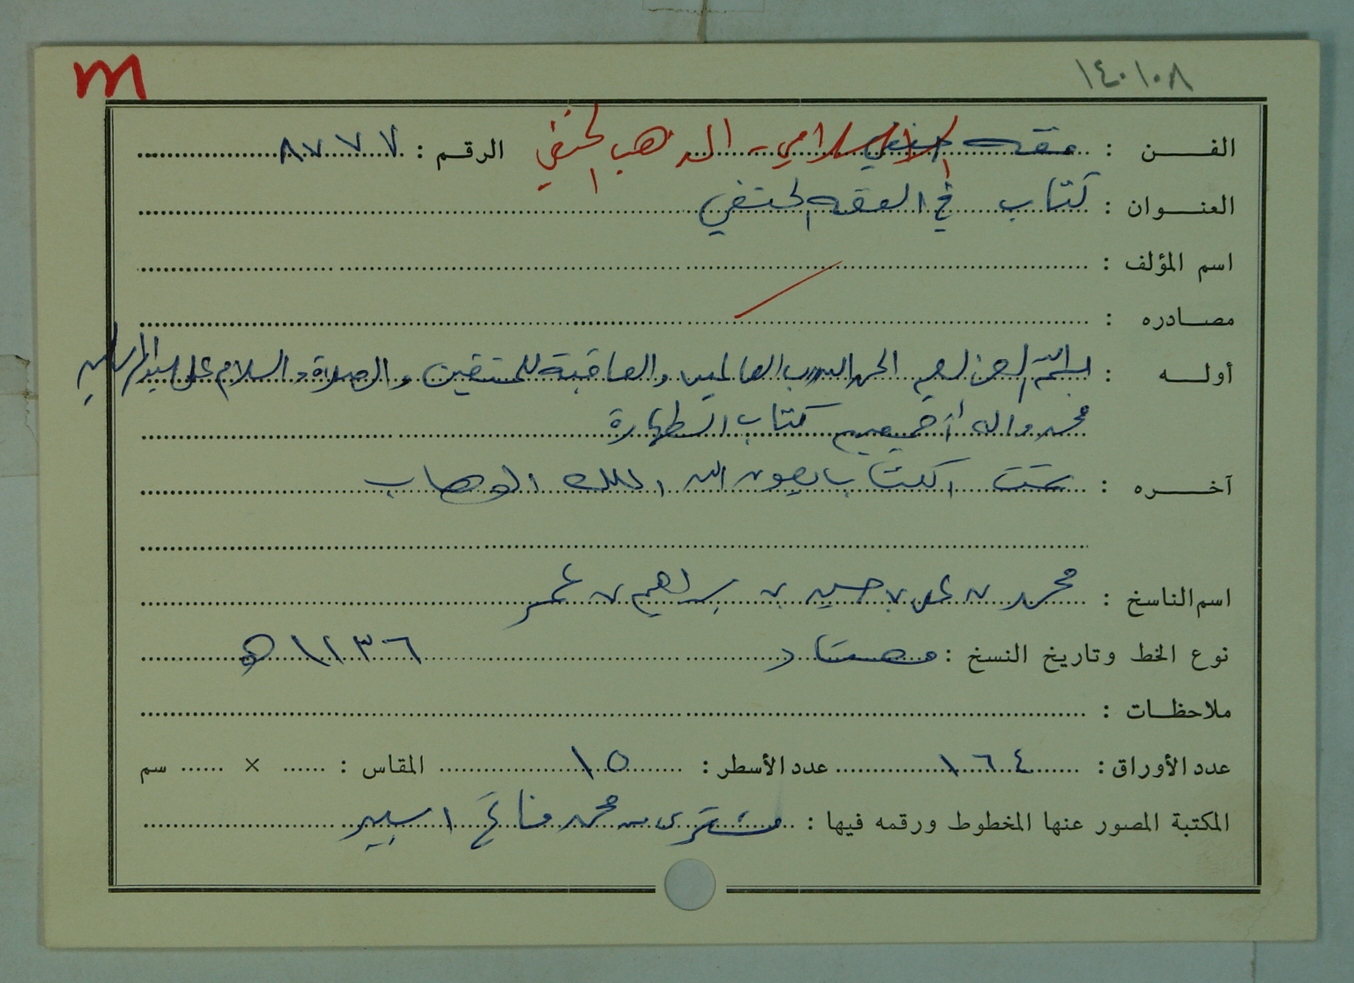 m
١٤٠١٠٨
الفن : فقه حنفي الإسلامي - المذهب الحنفي الرقم : ٨٧٧٧
العنوان : كتاب في الفقه الحنفي
اسم المؤلف :
مصادره :
أوله : بسم الله الرحمن الرحيم الحمد لله رب العالمين والعاقبة للمتقين والصلاة والسلام على سيد المرسلين
محمد واله أجمعين كتاب الطهارة
آخره : تمت الكتاب بعون الله الملك الوهاب
اسم الناسخ : محمد بن علي بن حسين بن إبراهيم بن عمر
نوع الخط وتاريخ النسخ : معتاد ١١٣٦ هـ
ملاحظات :
عدد الأوراق : ١٦٤ عدد الأسطر : ١٥ المقاس : × سم
المكتبة المصور عنها المخطوط ورقمه فيها : مشترى من محمد